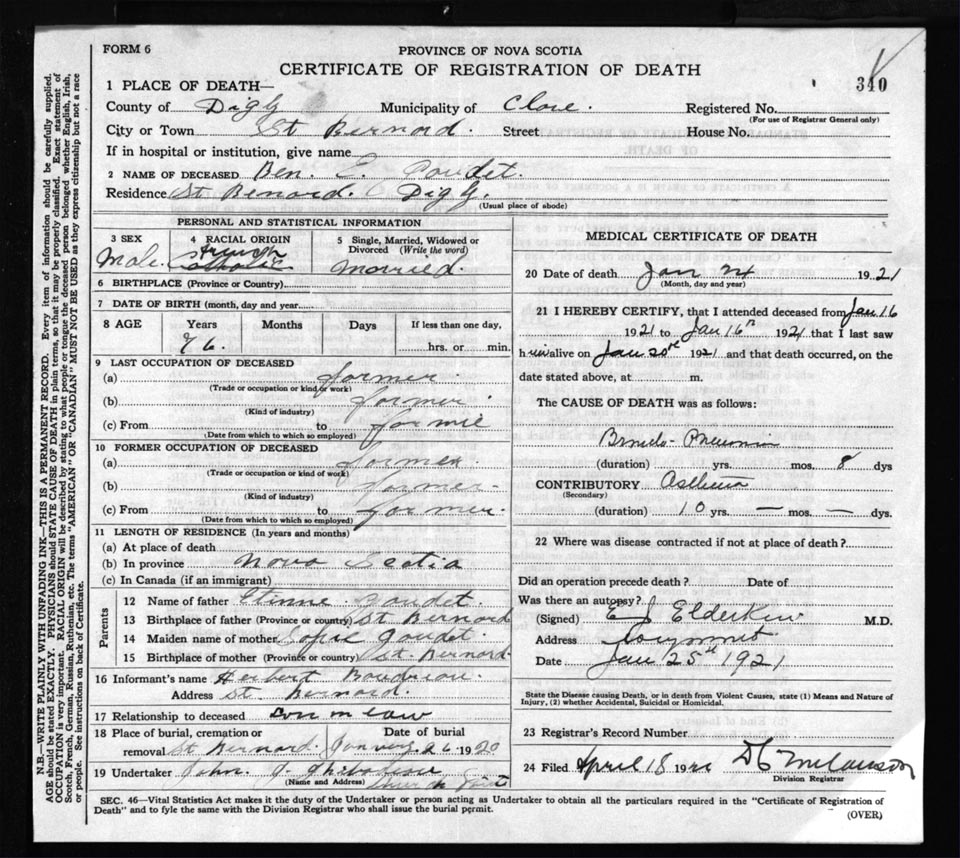 FORM 6
PROVINCE OF NOVA SCOTIA
CERTIFICATE OF REGISTRATION OF DEATH
340
1 PLACE OF DEATH—
County of Digby Municipality of Clare. Registered No.
(For use of Registrar General only)
City or Town St Bernard. Street House No.
If in hospital or institution, give name
2 NAME OF DECEASED Ben. E. Goudet.
Residence St Benard. Digby.
(Usual place of abode)
PERSONAL AND STATISTICAL INFORMATION
3 SEX 4 RACIAL ORIGIN 5 Single, Married, Widowed or Divorced (Write the word)
Male. French Catholic Married.
6 BIRTHPLACE (Province or Country)
7 DATE OF BIRTH (month, day and year)
8 AGE Years Months Days If less than one day,
76. hrs. or min.
9 LAST OCCUPATION OF DECEASED
(a) farmer
(Trade or occupation or kind of work)
(b) farmer
(Kind of industry)
(c) From to
(Date from which to which so employed)
10 FORMER OCCUPATION OF DECEASED
(a) farmer
(Trade or occupation or kind of work)
(b) farmer
(Kind of industry)
(c) From to farmer.
(Date from which to which so employed)
11 LENGTH OF RESIDENCE (In years and months)
(a) At place of death
(b) In province Nova Scotia
(c) In Canada (if an immigrant)
Parents
12 Name of father Etinne Goudet.
13 Birthplace of father (Province or country) St Bernard
14 Maiden name of mother Sofie Goudet.
15 Birthplace of mother (Province or country) St. Bernard.
16 Informant's name Herbert Boudreau.
Address St. Bernard.
17 Relationship to deceased son in law
18 Place of burial, cremation or removal Date of burial
St Bernard. 26 1920
19 Undertaker John. J.
(Name and Address) Church Point
MEDICAL CERTIFICATE OF DEATH
20 Date of death Jan 24 1921
(Month, day and year)
21 I HEREBY CERTIFY, that I attended deceased from Jan 16
1921 to Jan 16th 1921 that I last saw
him alive on Jan 20th 1921 and that death occurred, on the
date stated above, at m.
The CAUSE OF DEATH was as follows:
Broncho-Pneumonia
(duration) yrs. mos. 8 dys
CONTRIBUTORY Asthma
(Secondary)
(duration) 10 yrs. — mos. — dys.
22 Where was disease contracted if not at place of death?
Did an operation precede death? Date of
Was there an autopsy?
(Signed) E J Elderkin M.D.
Address Weymouth
Date Jan 25th 1921
State the Disease causing Death, or in death from Violent Causes, state (1) Means and Nature of
Injury, (2) whether Accidental, Suicidal or Homicidal.
23 Registrar's Record Number
24 Filed April 18 1921 D C Melanson
Division Registrar
SEC. 46—Vital Statistics Act makes it the duty of the Undertaker or person acting as Undertaker to obtain all the particulars required in the "Certificate of Registration of
Death" and to fyle the same with the Division Registrar who shall issue the burial permit.
(OVER)
N.B.—WRITE PLAINLY WITH UNFADING INK—THIS IS A PERMANENT RECORD. Every item of information should be carefully supplied.
AGE should be stated EXACTLY. PHYSICIANS should STATE CAUSE OF DEATH in plain terms, so that it may be properly classified. Exact statement of
OCCUPATION is very important. RACIAL ORIGIN will be described by stating to what people or tongue the deceased person belonged whether English, Irish,
Scotch, French, German, Russian, Ruthenian, etc. The terms "AMERICAN" OR "CANADIAN" MUST NOT BE USED as they express citizenship but not a race
or people. See instructions on back of Certificate.